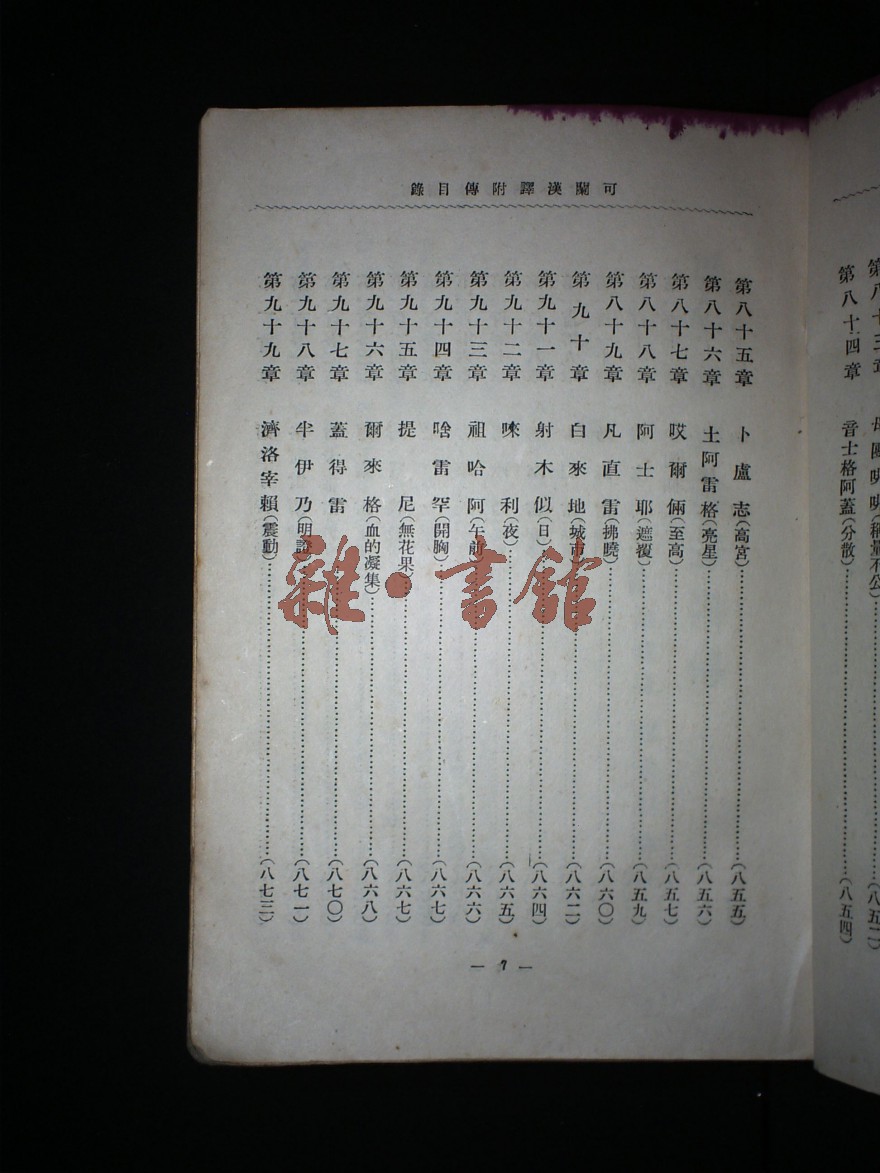 可蘭漢譯附傳目錄
第八十五章 卜盧志（高宮）………（八五五）
第八十六章 土阿雷格（亮星）………（八五六）
第八十七章 哎爾倆（至高）………（八五七）
第八十八章 阿士耶（遮覆）………（八五九）
第八十九章 凡直雷（拂曉）………（八六〇）
第九十章 白來地（城市）………（八六二）
第九十一章 射木似（日）………（八六四）
第九十二章 唻利（夜）………（八六五）
第九十三章 祖哈阿（午前）………（八六六）
第九十四章 啥雷罕（開胸）………（八六七）
第九十五章 提尼（無花果）………（八六七）
第九十六章 爾來格（血的凝集）………（八六八）
第九十七章 蓋得雷………（八七〇）
第九十八章 半伊乃（明證）………（八七一）
第九十九章 濟洛宰賴（震動）………（八七三）
— 7 —
第八十四章 音士格阿蓋（分散）………（八五四）
雜·書館